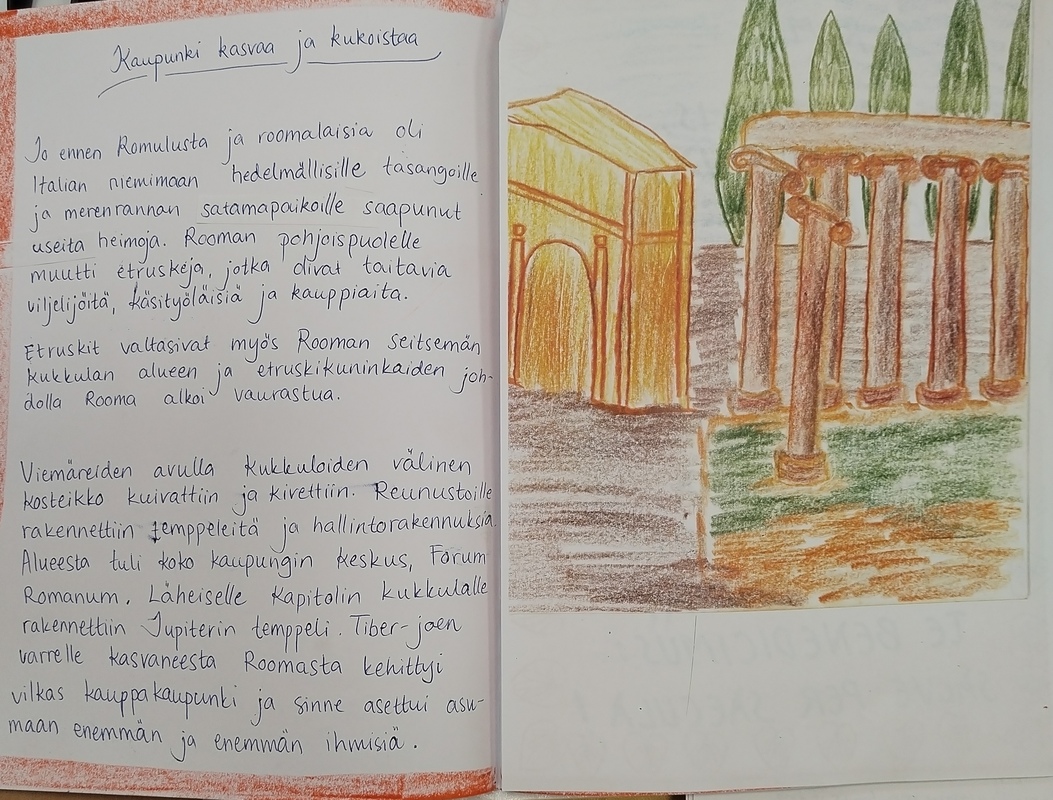 Kaupunki kasvaa ja kukoistaa
Jo ennen Romulusta ja roomalaisia oli
Italian niemimaan hedelmällisille tasangoille
ja merenrannan satamapaikoille saapunut
useita heimoja. Rooman pohjoispuolelle
muutti etruskeja, jotka olivat taitavia
viljelijöitä, käsityöläisiä ja kauppiaita.
Etruskit valtasivat myös Rooman seitsemän
kukkulan alueen ja etruskikuninkaiden joh-
dolla Rooma alkoi vaurastua.
Viemäreiden avulla kukkuloiden välinen
kosteikko kuivattiin ja kivettiin. Reunustoille
rakennettiin temppeleitä ja hallintorakennuksia.
Alueesta tuli koko kaupungin keskus, Forum
Romanum. Läheiselle Kapitolin kukkulalle
rakennettiin Jupiterin temppeli. Tiber-joen
varrelle kasvaneesta Roomasta kehittyi
vilkas kauppakaupunki ja sinne asettui asu-
maan enemmän ja enemmän ihmisiä.